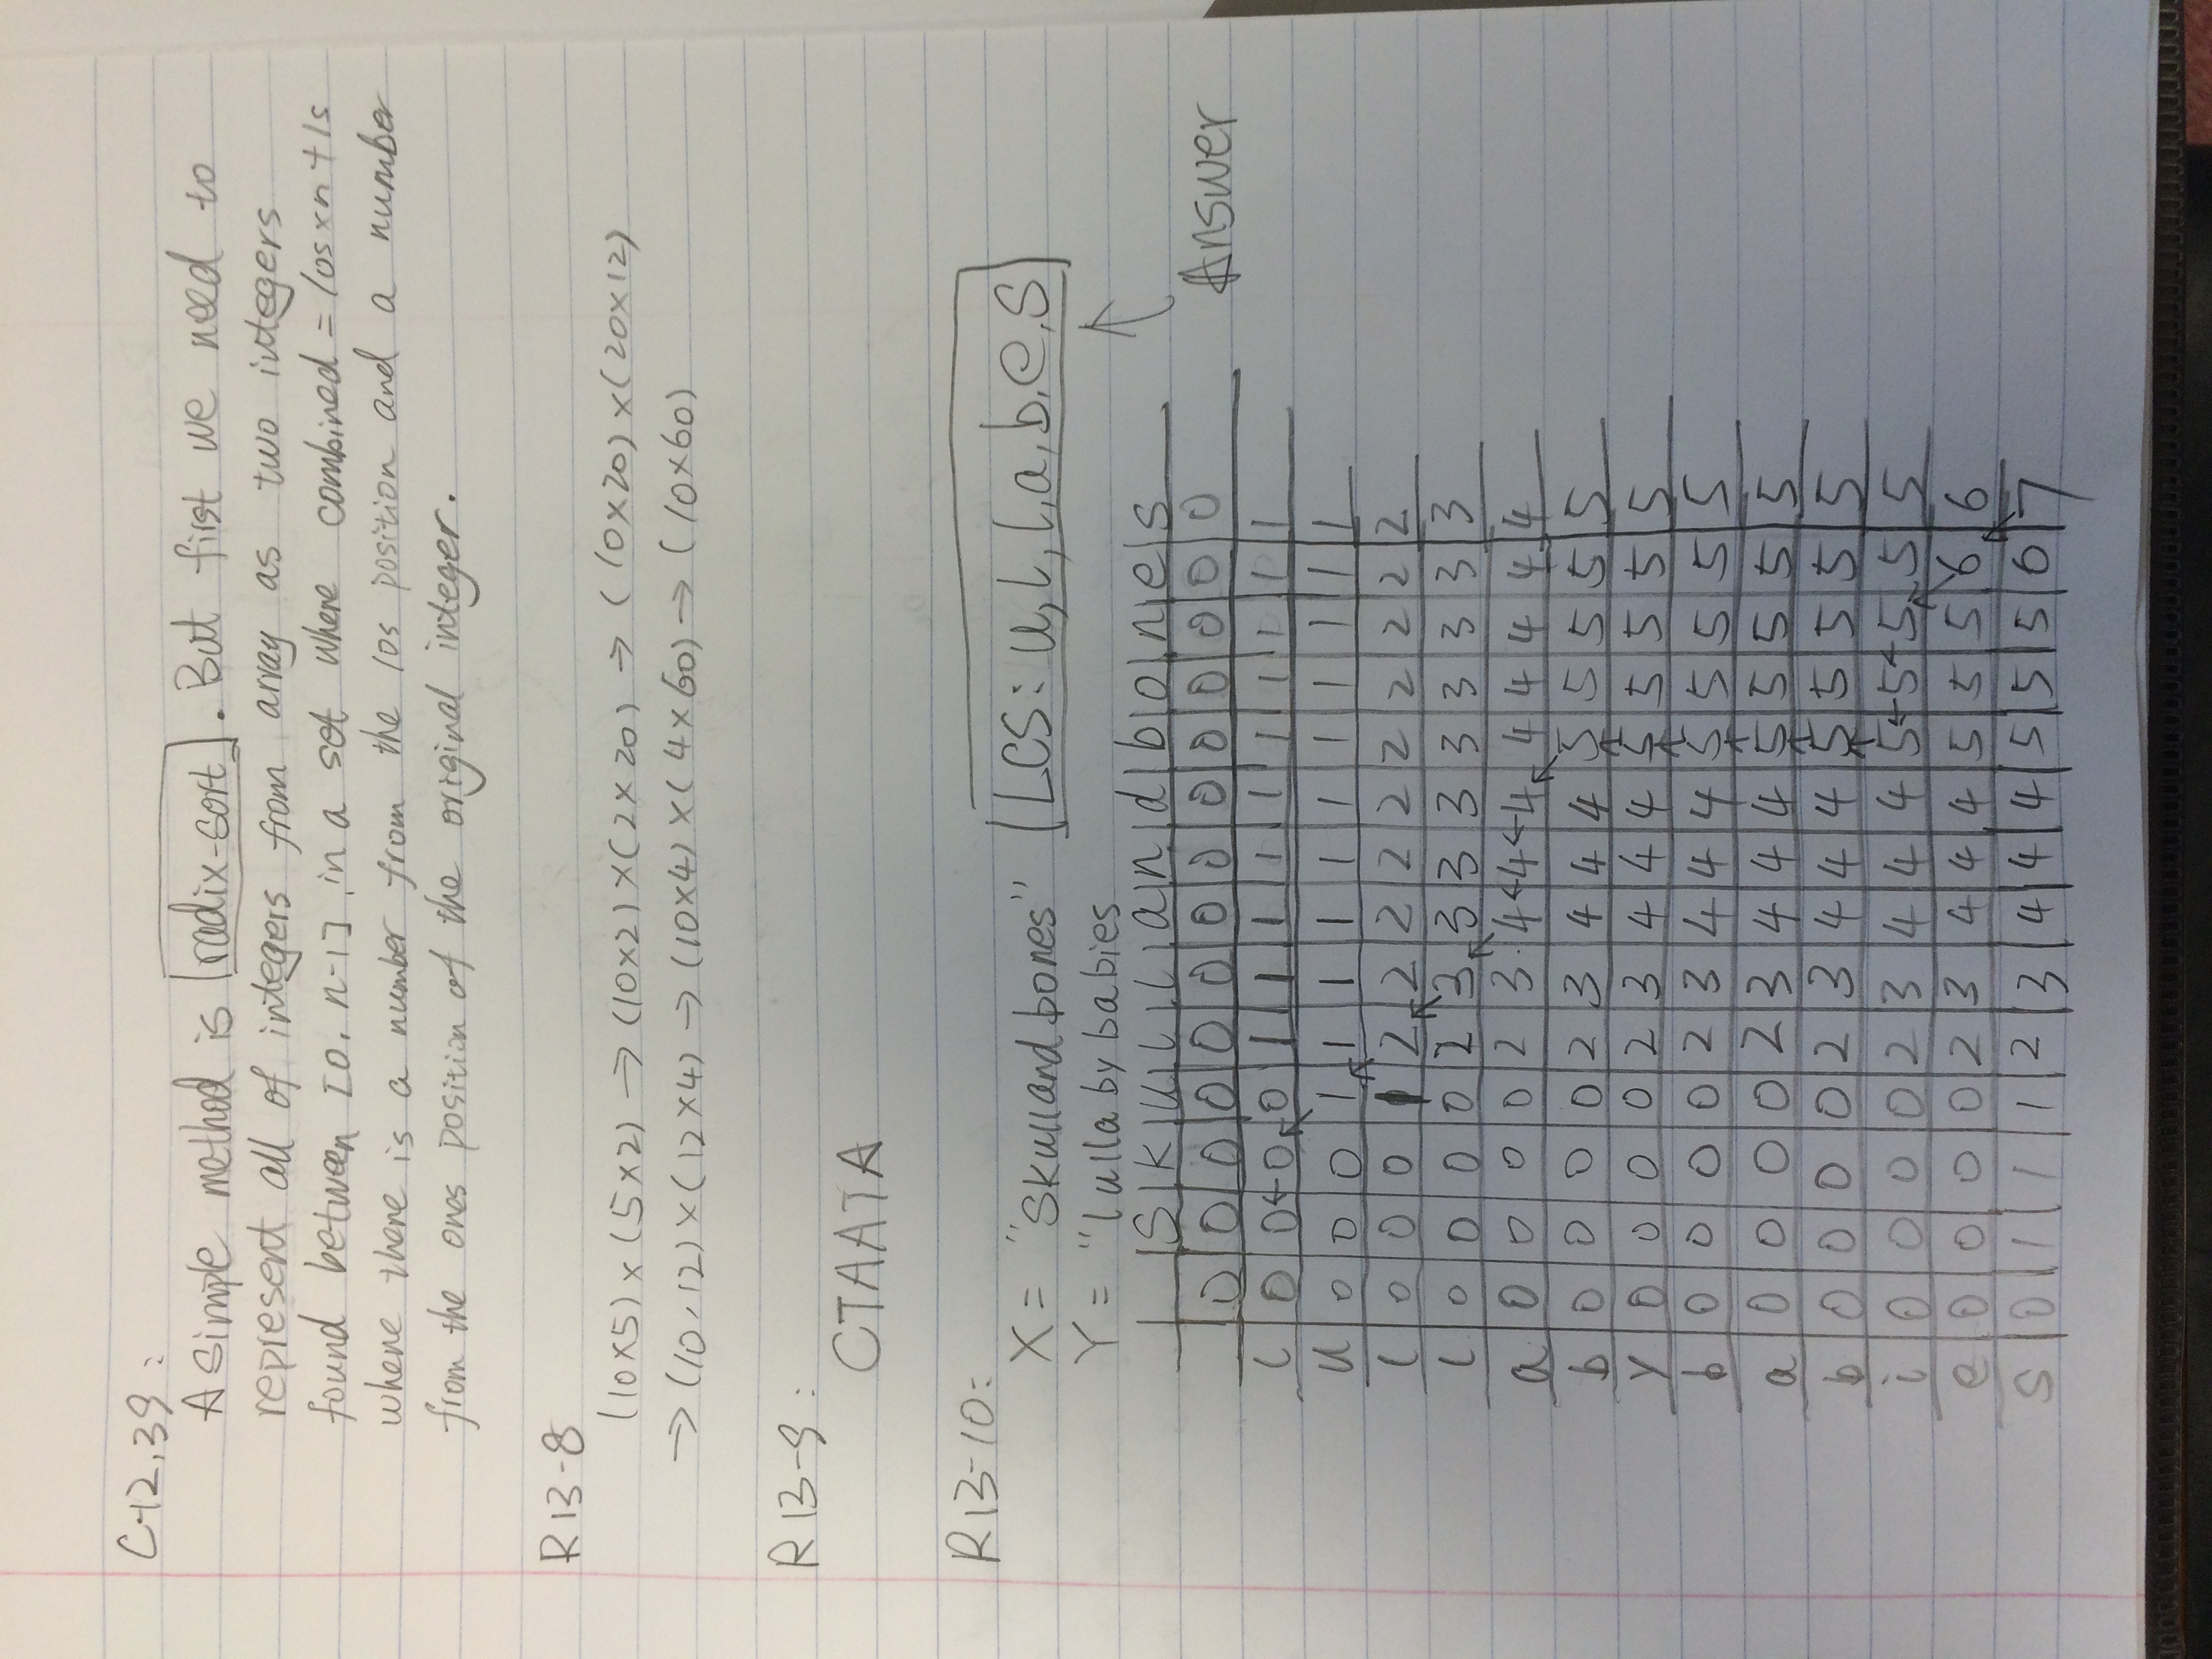 C-12,39:
A simple method is radix-sort. But first we need to
represent all of integers from array as two integers
found between [0, n-1], in a set where combined = 10s×n+1s
where there is a number from the 10s position and a number
from the ones position of the original integer.
R13-8
(10×5)×(5×2) → (10×2)×(2×20) → (10×20)×(20×12)
→ (10,12)×(12×4) → (10×4)×(4×60) → (10×60)
R13-9:
CTAATA
R13-10:
X = "skullandbones" LCS: u,l,l,a,b,e,s
Y = "lullabybabies
S k u l l a n d b o n e s
0 0 0 0 0 0 0 0 0 0 0 0 0 0 Answer
l 0 0←0 0 1 1 1 1 1 1 1 1 1 1
u 0 0 0 1 1 1 1 1 1 1 1 1 1 1
l 0 0 0 1 2 2 2 2 2 2 2 2 2 2
l 0 0 0 0 2 3 3 3 3 3 3 3 3 3
a 0 0 0 0 2 3 4←4←4 4 4 4 4 4
b 0 0 0 0 2 3 4 4 4 5 5 5 5 5
y 0 0 0 0 2 3 4 4 4 5 5 5 5 5
b 0 0 0 0 2 3 4 4 4 5 5 5 5 5
a 0 0 0 0 2 3 4 4 4 5 5 5 5 5
b 0 0 0 0 2 3 4 4 4 5 5 5 5 5
i 0 0 0 0 2 3 4 4 4 5←5←5 5 5
e 0 0 0 0 2 3 4 4 4 5 5 5 6 6
s 0 1 1 1 2 3 4 4 4 5 5 5 6 7